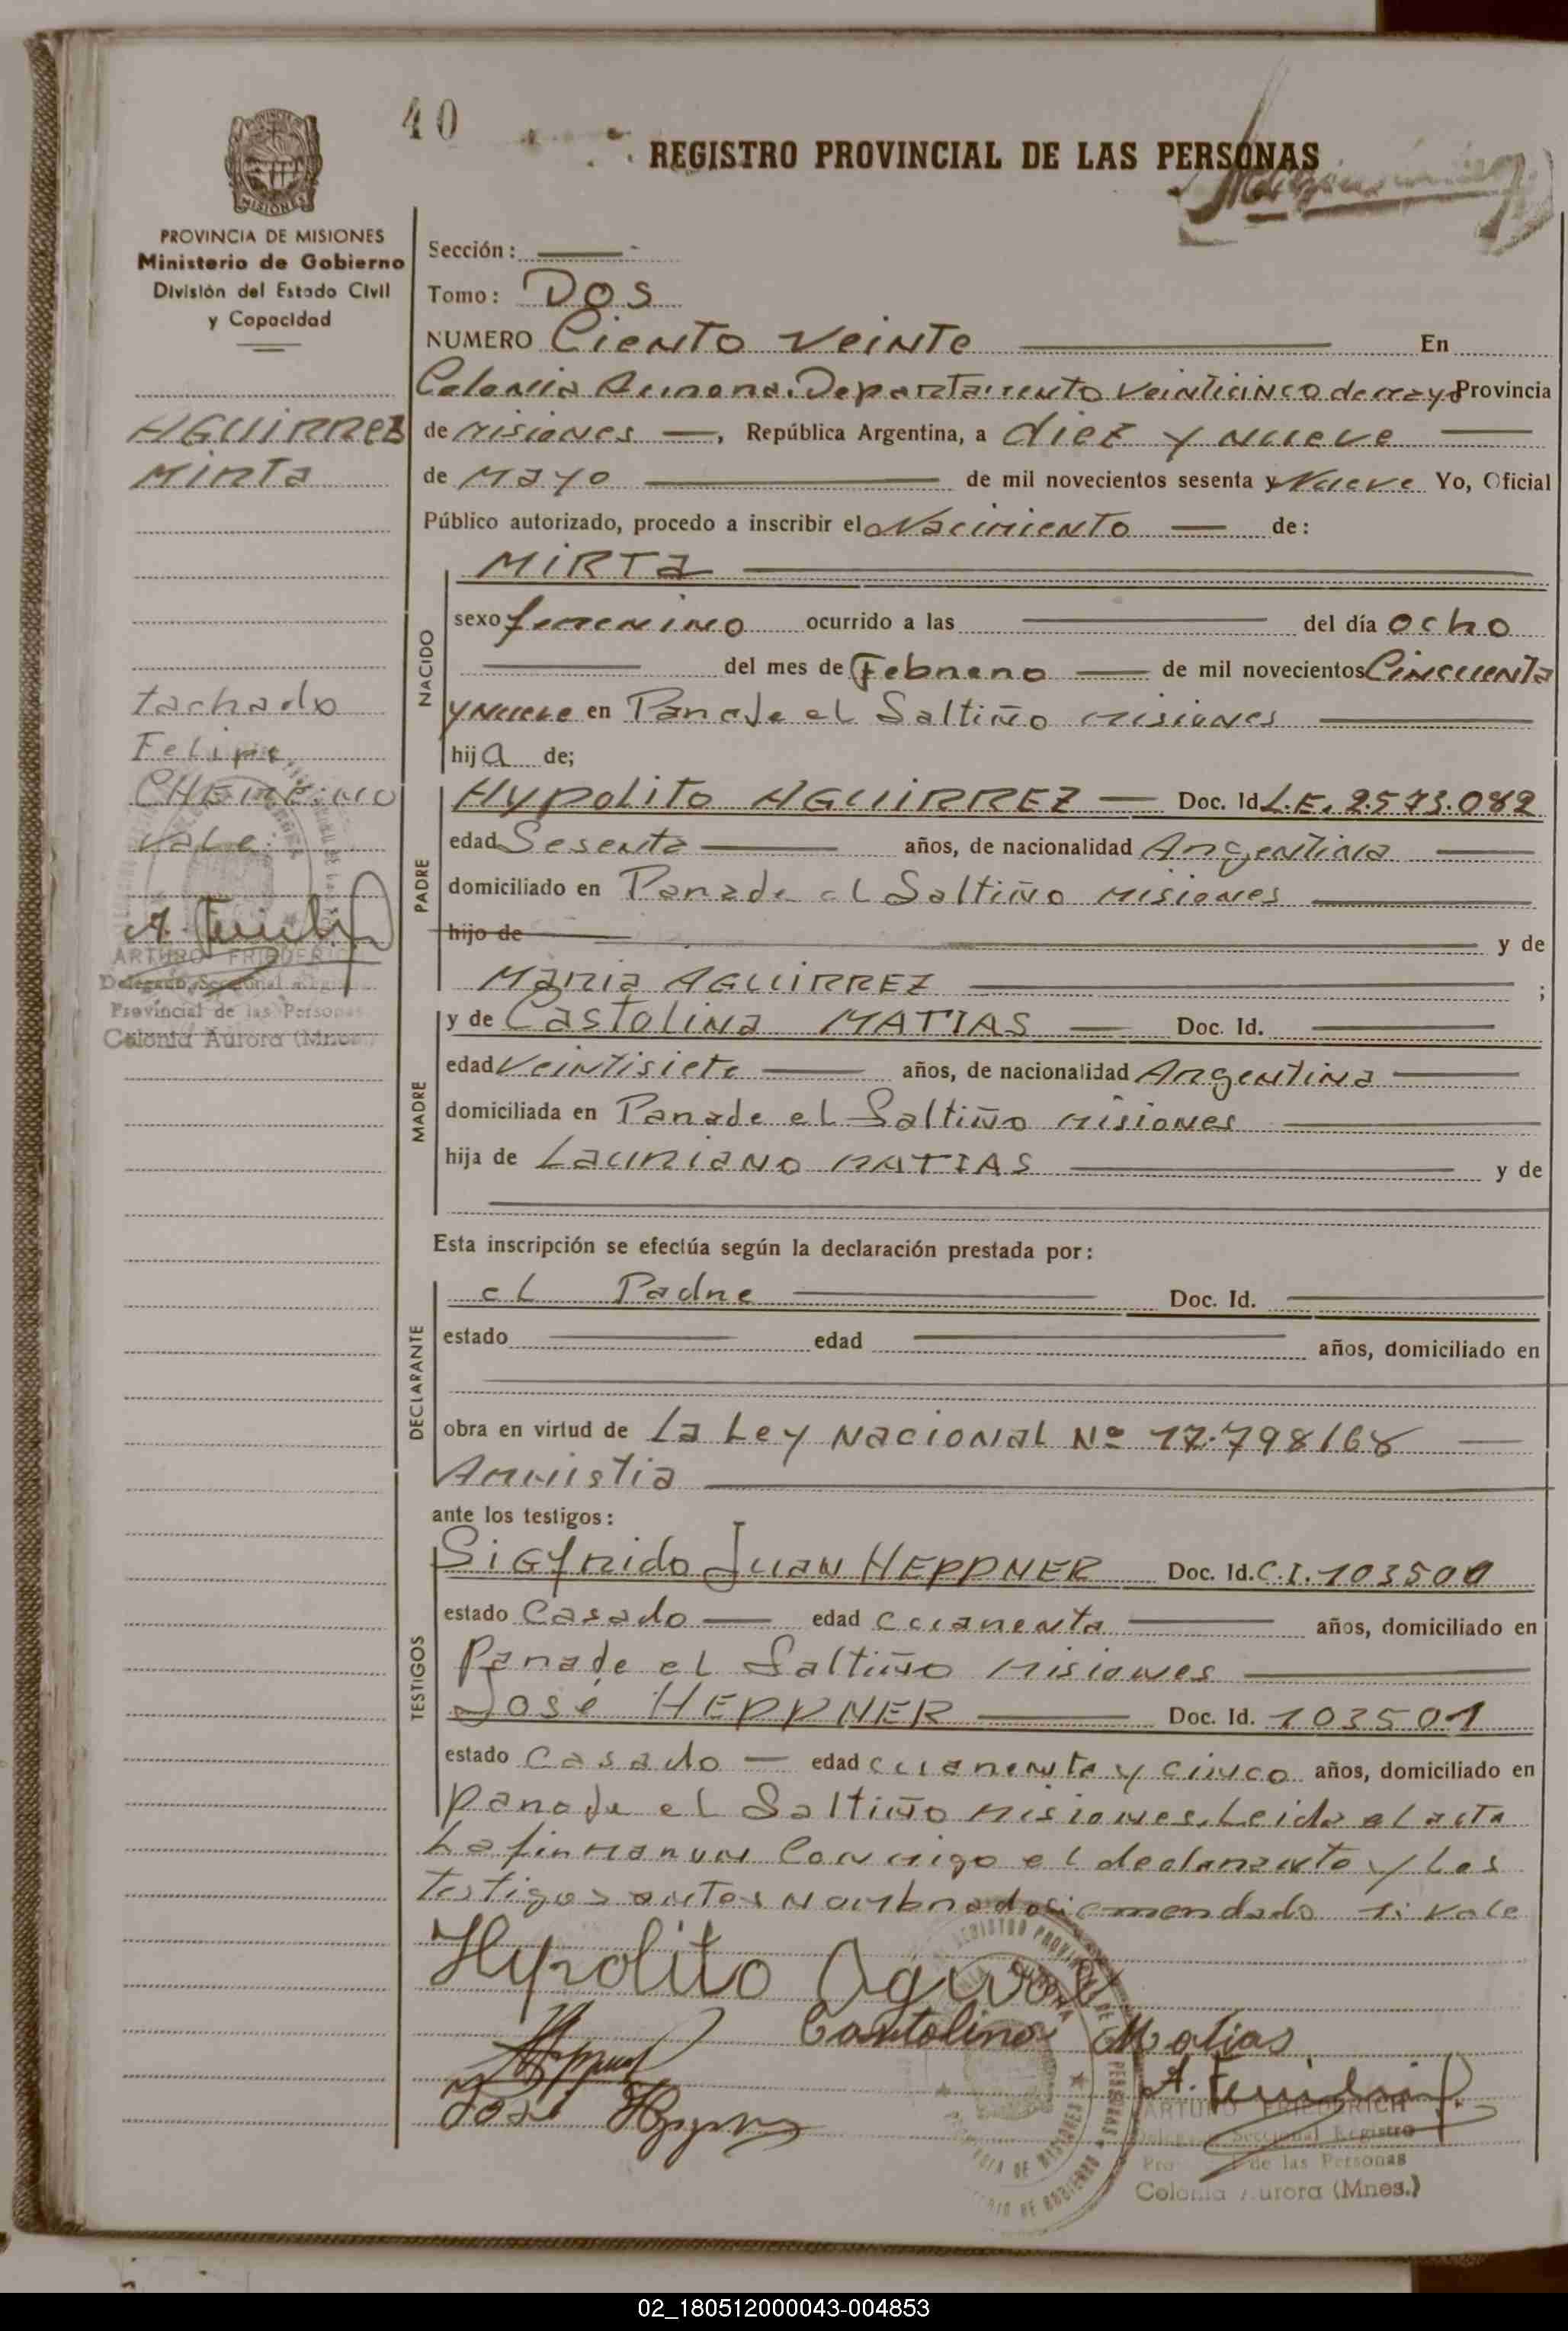 40
REGISTRO PROVINCIAL DE LAS PERSONAS
PROVINCIA DE MISIONES
Ministerio de Gobierno
División del Estado Civil
y Capacidad
AGUIRREZ
Mirta
tachado
Felipe
vale
A. Friederich
ARTURO FRIEDERICH
Delegado Seccional
Provincial de las Personas
Colonia Aurora (Mnes.)
Sección:
Tomo: DOS
NUMERO Ciento Veinte En
Colonia Aurora. Departamento Veinticinco de mayo Provincia
de Misiones, República Argentina, a diez y nueve
de Mayo de mil novecientos sesenta y Nueve Yo, Oficial
Público autorizado, procedo a inscribir el Nacimiento de:
NACIDO
MIRTA
sexo femenino ocurrido a las del día ocho
del mes de Febrero de mil novecientos Cincuenta
y nueve en Parade el Saltiño Misiones
hija de;
PADRE
Hypolito AGUIRREZ Doc. Id L.E. 2.573.082
edad Sesenta años, de nacionalidad Argentina
domiciliado en Parade el Saltiño Misiones
hijo de y de
Maria AGUIRREZ ;
MADRE
y de Castolina MATIAS Doc. Id.
edad Veintisiete años, de nacionalidad Argentina
domiciliada en Parade el Saltiño Misiones
hija de Lauriano MATIAS y de
Esta inscripción se efectúa según la declaración prestada por:
DECLARANTE
el Padre Doc. Id.
estado edad años, domiciliado en
obra en virtud de La Ley Nacional Nº 17.798/68
Amnistia
ante los testigos:
TESTIGOS
Sigfrido Juan HEPPNER Doc. Id. C.I. 103500
estado Casado edad cuarenta años, domiciliado en
Parade el Saltiño Misiones
José HEPPNER Doc. Id. 103501
estado Casado edad cuarenta y cinco años, domiciliado en
Parade el Saltiño Misiones. Leida el acta
La firmaron Conmigo el declarante y Los
testigos antes nombrados: emendado Vale
Hypolito
Castolina Matias
José
A. Friederich
ARTURO FRIEDERICH
Seccional Registro
de las Personas
Colonia Aurora (Mnes.)
02_180512000043-004853